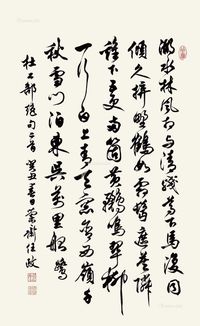 湖水林風相与清殘尊下馬復同
傾久拚野鶴如霜鬢遮莫隣
雞下五更兩箇黃鸝鳴翠柳
一行白上青天窓含西嶺千
秋雪門泊東吳萬里船鷺
杜工部絕句二首癸丑春日任政